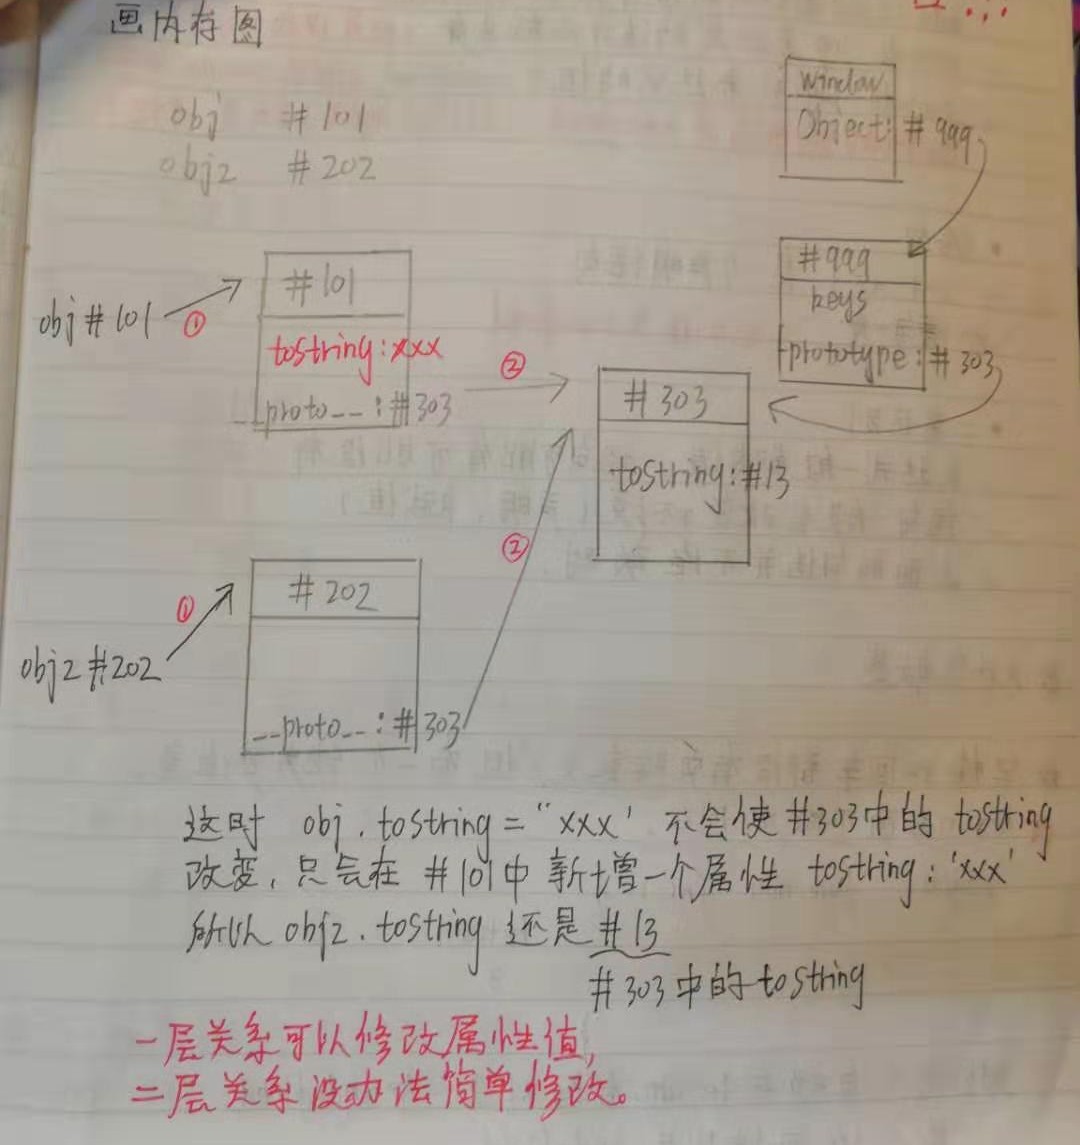 画内存图
obj #101
obj2 #202
window
Object: #999
#999
keys
prototype: #303
obj #101
①
#101
tostring: xxx
__proto__: #303
②
#303
tostring: #13
②
obj2 #202
①
#202
__proto__: #303
这时 obj.tostring = "xxx' 不会使 #303中的 tostring
改变,只会在 #101中 新增一个属性 tostring: 'xxx'
所以 obj2.tostring 还是 #13
#303中的 tostring
一层关系可以修改属性值,
二层关系没办法简单修改。